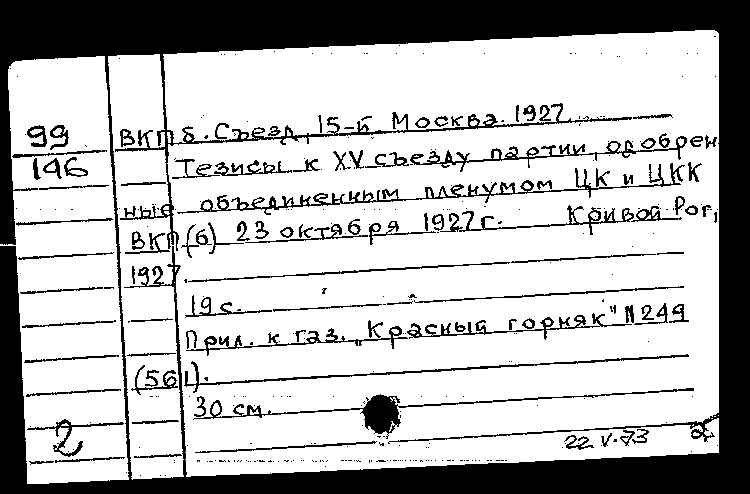 99
146
ВКПб. Съезд, 15-й. Москва. 1927.
Тезисы к XV съезду партии, одобрен
ные объединенным пленумом ЦК и ЦКК
ВКП(б) 23 октября 1927 г. Кривой Рог,
1927.
19 с.
Прил. к газ. „Красный горняк" N 249
(561).
30 см.
2
22.V.73